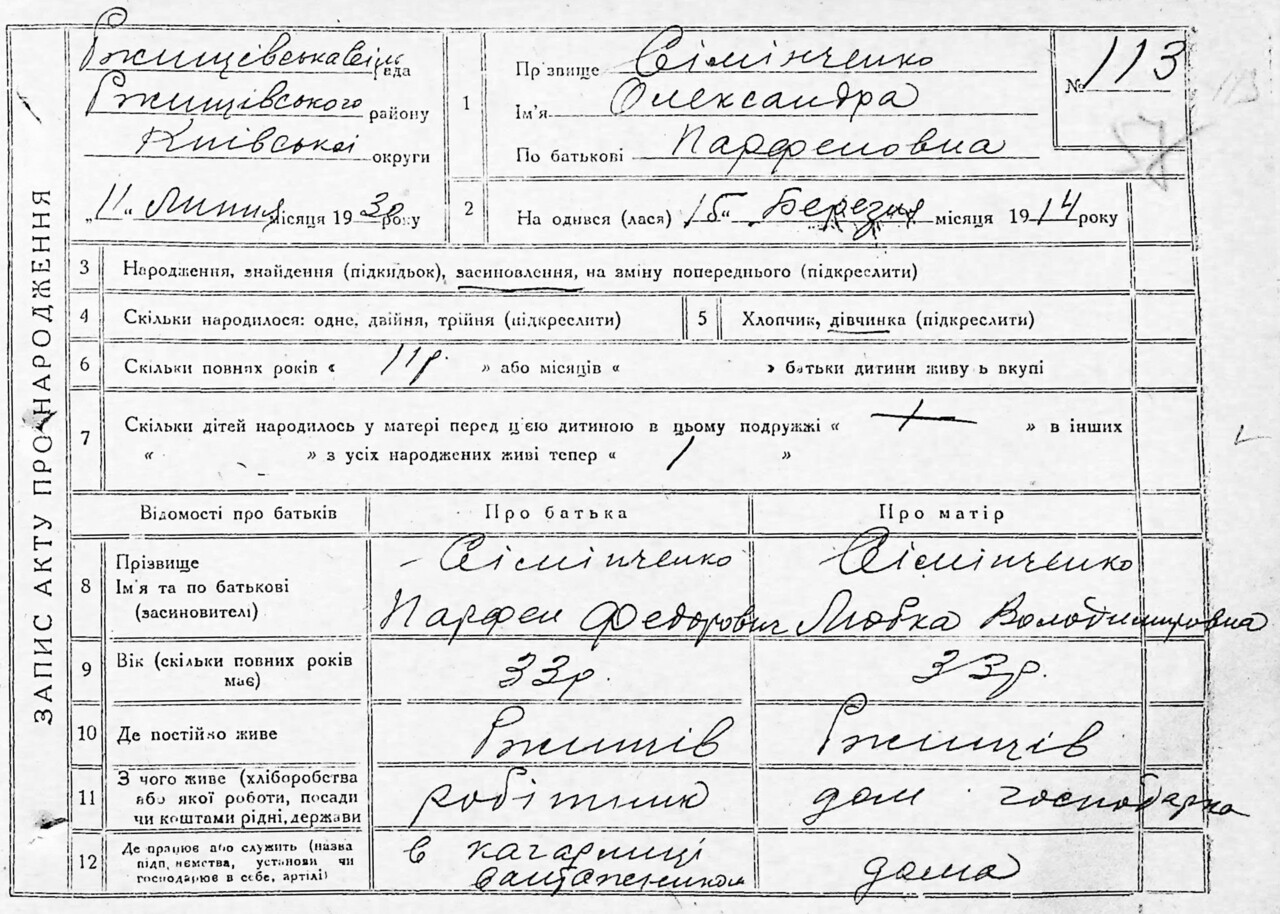 ЗАПИС АКТУ ПРО НАРОДЖЕННЯ
Ржищівська сіль рада
Ржищівського району
Київської округи
„11“ Липня місяця 1930р року
1
Прізвище Сімінченко
Ім'я Олександра
По батькові Парфеновна
№ 113
113
2
На одився (лася) 15“ Березня місяця 1914 року
3 Народження, знайдення (підкидьок), засиновлення, на зміну попереднього (підкреслити)
4 Скільки народилося: одне, двійня, трійня (підкреслити)
5 Хлопчик, дівчинка (підкреслити)
6 Скільки повних років « 11р. » або місяців « » батьки дитини живуть вкупі
7 Скільки дітей народилось у матері перед цією дитиною в цьому подружжі « » в інших
« » з усіх народжених живі тепер « / »
Відомості про батьків Про батька Про матір
8 Прізвище
Ім'я та по батькові
(засиновителі)
Сімінченко
Парфен Федорович
Сімінченко
Любка Володимировна
9 Вік (скільки повних років
має)
33р.
33р.
10 Де постійно живе Ржищів Ржищів
11 З чого живе (хліборобства
або якої роботи, посади
чи коштами рідні, держави
робітник
дом господарка
12 Де працює або служить (назва
підп,иємства, установи чи
господарює в себе, артілі)
в кагарлиці
вантажником
дома